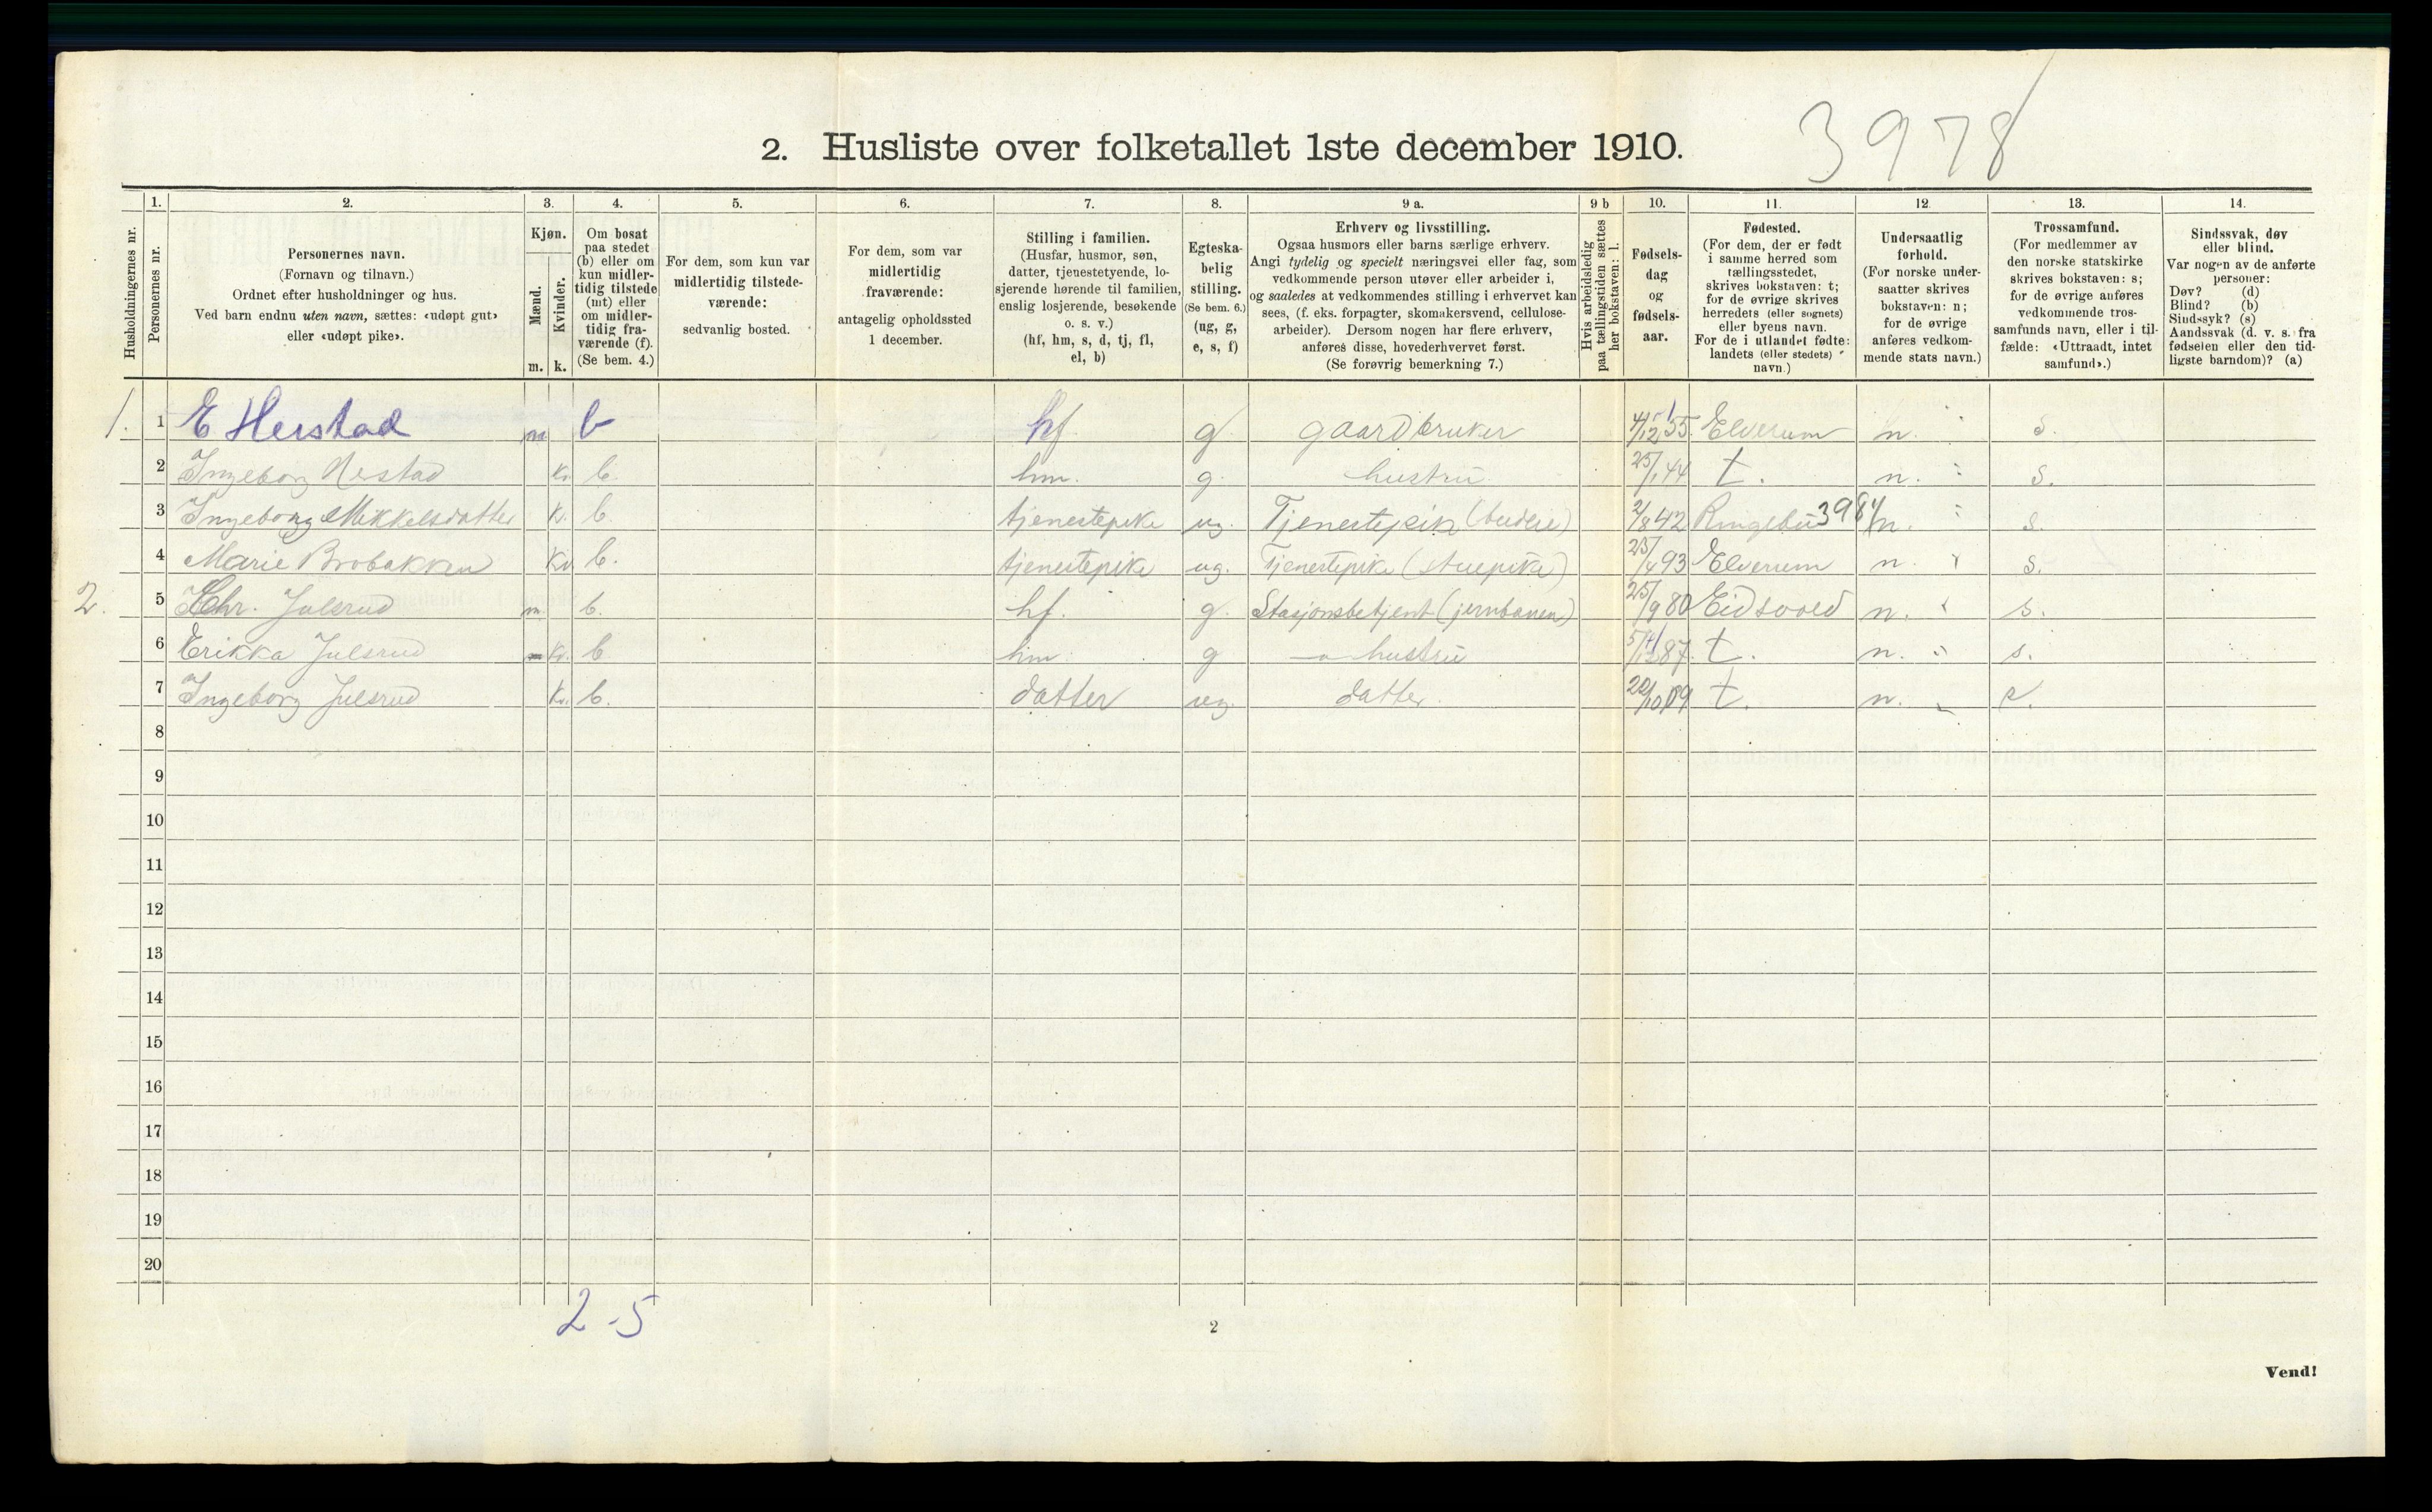 3978
2. Husliste over folketallet 1ste december 1910.
Husholdningernes nr.
1. Personernes nr.
2. Personernes navn.
(Fornavn og tilnavn.)
Ordnet efter husholdninger og hus.
Ved barn endnu uten navn, sættes: «udøpt gut»
eller «udøpt pike».
3. Kjøn.
Mænd. Kvinder.
m. k.
4. Om bosat
paa stedet
(b) eller om
kun midler-
tidig tilstede
(mt) eller
om midler-
tidig fra-
værende (f).
(Se bem. 4.)
5. For dem, som kun var
midlertidig tilstede-
værende:
sedvanlig bosted.
6. For dem, som var
midlertidig
fraværende:
antagelig opholdssted
1 december.
7. Stilling i familien.
(Husfar, husmor, søn,
datter, tjenestetyende, lo-
sjerende hørende til familien,
enslig losjerende, besøkende
o. s. v.)
(hf, hm, s, d, tj, fl,
el, b)
8. Egteska-
belig
stilling.
(Se bem. 6.)
(ug, g,
e, s, f)
9 a. Erhverv og livsstilling.
Ogsaa husmors eller barns særlige erhverv.
Angi tydelig og specielt næringsvei eller fag, som
vedkommende person utøver eller arbeider i,
og saaledes at vedkommendes stilling i erhvervet kan
sees, (f. eks. forpagter, skomakersvend, cellulose-
arbeider). Dersom nogen har flere erhverv,
anføres disse, hovederhvervet først.
(Se forøvrig bemerkning 7.)
9 b Hvis arbeidsledig
paa tællingstiden sættes
her bokstaven: l.
10. Fødsels-
dag
og
fødsels-
aar.
11. Fødested.
(For dem, der er født
i samme herred som
tællingsstedet,
skrives bokstaven: t;
for de øvrige skrives
herredets (eller sognets)
eller byens navn.
For de i utlandet fødte:
landets (eller stedets)
navn.)
12. Undersaatlig
forhold.
(For norske under-
saatter skrives
bokstaven: n;
for de øvrige
anføres vedkom-
mende stats navn.)
13. Trossamfund.
(For medlemmer av
den norske statskirke
skrives bokstaven: s;
for de øvrige anføres
vedkommende tros-
samfunds navn, eller i til-
fælde: «Uttraadt, intet
samfund».)
14. Sindssvak, døv
eller blind.
Var nogen av de anførte
personer:
Døv? (d)
Blind? (b)
Sindssyk? (s)
Aandssvak (d. v. s. fra
fødselen eller den tid-
ligste barndom)? (a)
1. 1 E Herstad m b hf g gaardbruker 4/12 55. Elverum n. s.
2 Ingeborg Herstad k. b. hm. g. hustru 25/1 44 t. n. s.
3 Ingeborg Mikkelsdatter k. b. tjenestepike ug. Tjenestepike (budeie) 2/8 42 Ringebu 3984 n. s.
4 Marie Brobakken kv b. tjenestepike ug. Tjenestepike (stuepike) 23/4 93 Elverum n. s.
2. 5 Chr. Julsrud m. b. hf. g. Stasjonsbetjent (jernbanen) 25/9 80 Eidsvold n. s.
6 Erikka Julsrud kv. b. hm g hustru 5/12 87. t. n. s.
7 Ingeborg Julsrud kv. b. datter ug. datter. 20/10 09 t. n. s.
8
9
10
11
12
13
14
15
16
17
18
19
20
2-5
2
Vend!